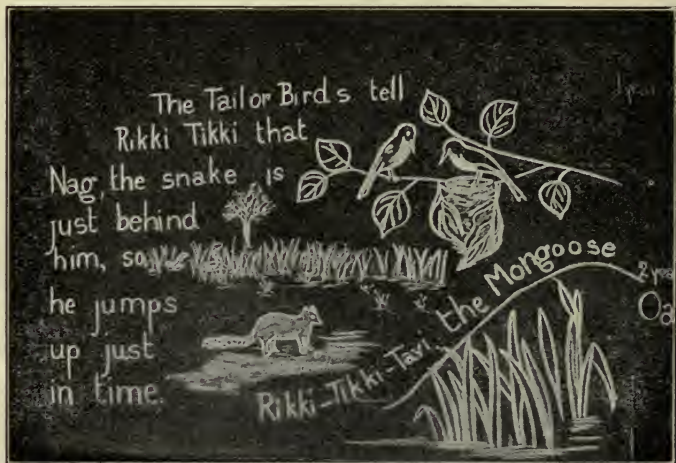 The Tailor Birds tell
Rikki Tikki that
Nag, the snake is
just behind
him, so
he jumps
up just
in time.
Rikki-Tikki-Tavi, the Mongoose